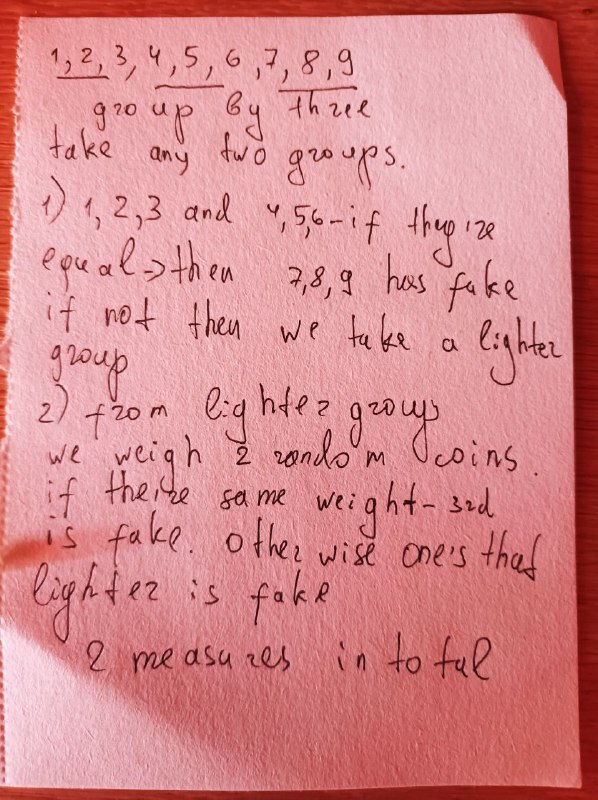 1, 2, 3, 4, 5, 6, 7, 8, 9
group by three
take any two groups.
1) 1, 2, 3 and 4, 5, 6 - if they're
equal -> then 7, 8, 9 has fake
if not then we take a lighter
group
2) from lighter group
we weigh 2 random coins.
if the're same weight - 3rd
is fake. Otherwise one's that
lighter is fake
2 measures in total